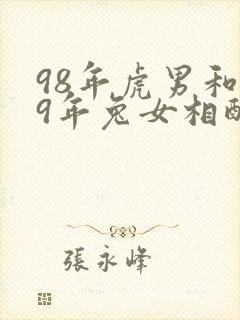 98年虎男和
9年兔女相配
張永峰